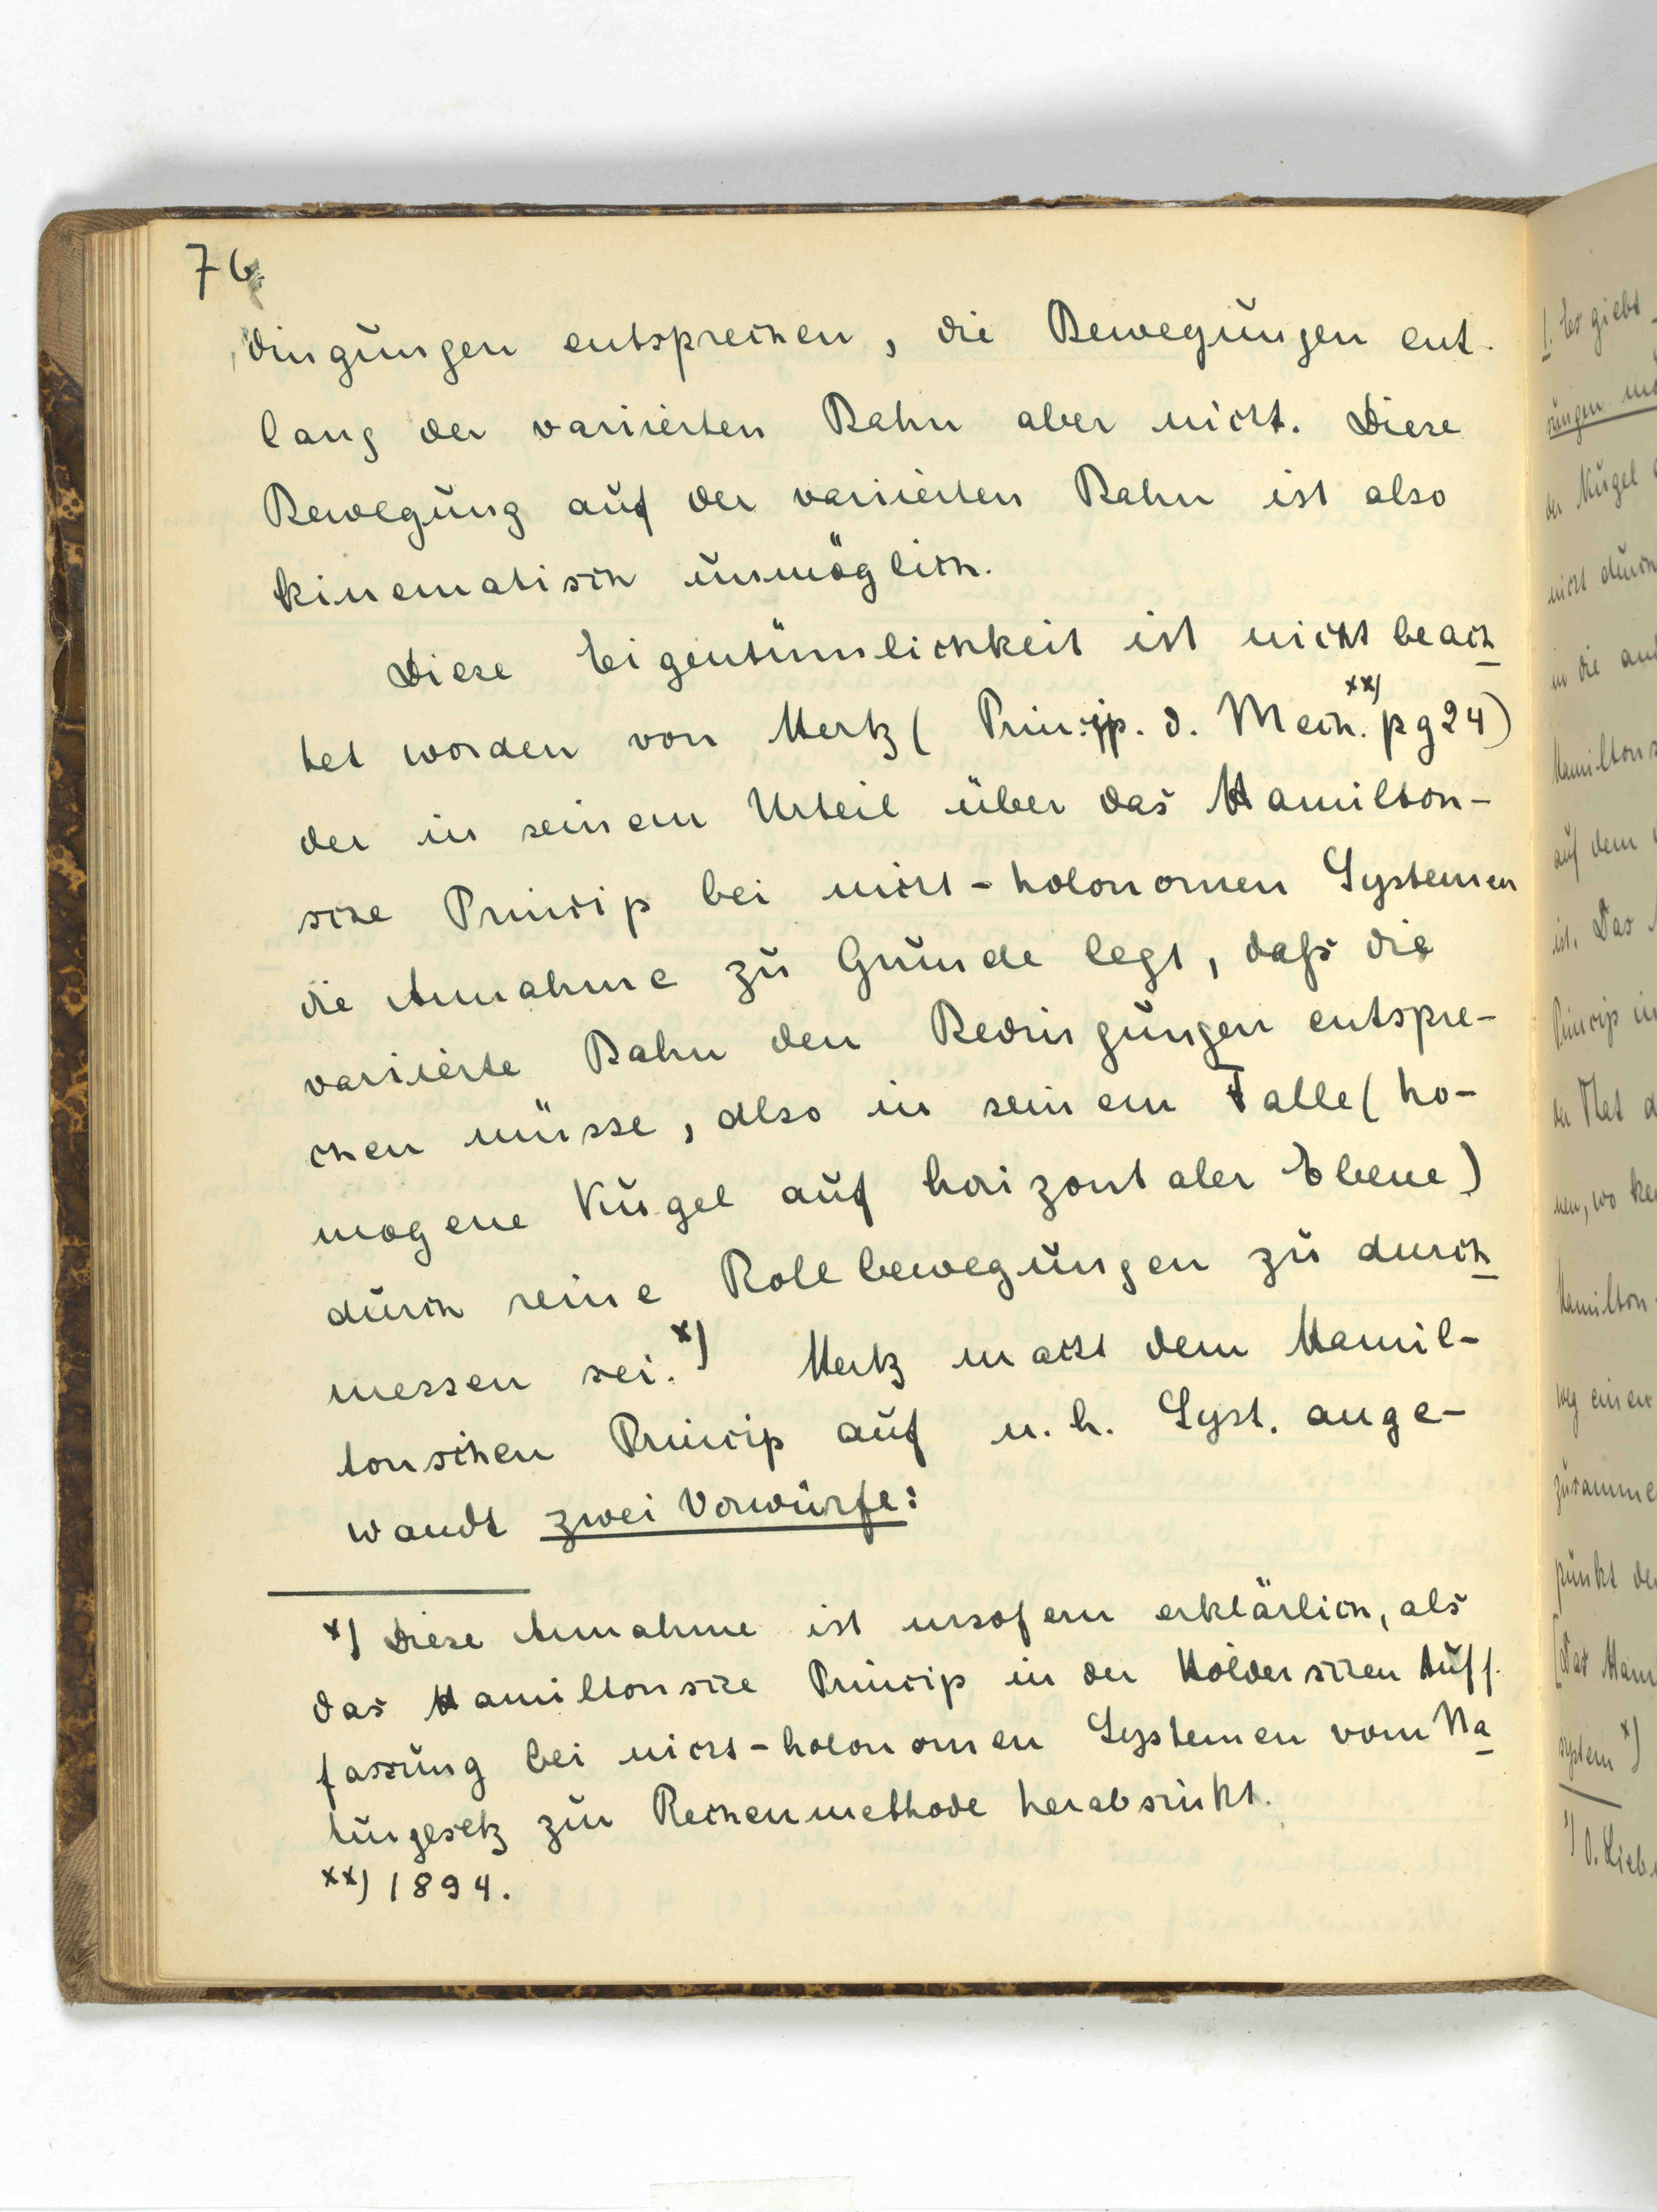 76
dingungen entsprechen, die Bewegungen ent-
lang der variierten Bahn aber nicht. Diese
Bewegung auf der variierten Bahn ist also
kinematisch unmöglich.
Diese Eigentümlichkeit ist nicht beach
tet worden von Hertz ( Princip. d. Mech. xx) pg 24)
der in seinem Urteil über das Hamilton-
sche Princip bei nicht-holonomen Systemen
die Annahme zu Grunde legt, daß die
variierte Bahn den Bedingungen entspre-
chen müsse, also in seinem Falle ( ho-
mogene Kugel auf horizontaler Ebene)
durch reine Rollbewegungen zu durch
messen sei. x) Hertz macht dem Hamil-
tonschen Princip auf n. h. Syst. ange-
wandt zwei Vorwürfe:
x) Diese Annahme ist insofern erklärlich, als
das Hamiltonsche Princip in der Hölderschen Auff-
fassung bei nicht-holonomen Systemen vom Na
turgesetz zur Rechenmethode herabsinkt.
xx) 1894.
1. Es giebt
der Kugel
nicht durch
in die
Hamiltons
auf dem
ist. Das
Princip in
der That d
nen, wo
Hamilton
weg einer
zusamme
punkt de
[Das Ham
system x)
x) O.